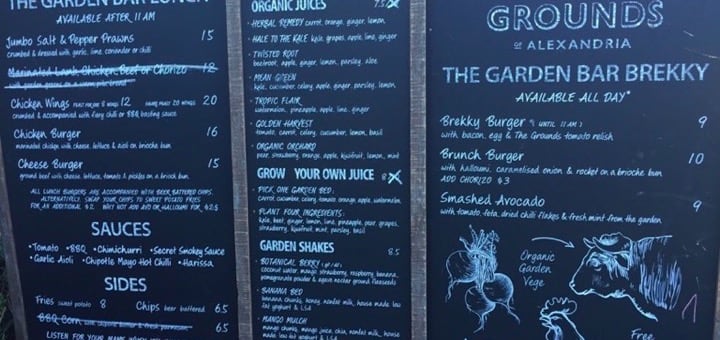 THE GARDEN BAR LUNCH
AVAILABLE AFTER 11AM
Jumbo Salt & Pepper Prawns 15
crumbed & dressed with garlic, lime, coriander or chilli
Marinated Lamb, Chicken, Beef or Chorizo 12
with garden greens on a warm pita bread
Chicken Wings 12 20
crumbed & accompanied with fiery chilli or BBQ basting sauce
Chicken Burger 16
marinated chicken with cheese, lettuce & aioli on brioche bun
Cheese Burger 15
ground beef with cheese, lettuce, tomato & pickles on a brioche bun
ALL LUNCH BURGERS ARE ACCOMPANIED WITH BEER BATTERED CHIPS.
ALTERNATIVELY, SWAP YOUR CHIPS TO SWEET POTATO FRIES
FOR AN ADDITIONAL $2. WHY NOT ADD AVO OR HALLOUMI FOR $2.5
SAUCES
•Tomato •BBQ •Chimichurri •Secret Smokey Sauce
•Garlic Aioli •Chipotle Mayo Hot Chilli •Harissa
SIDES
Fries sweet potato 8 Chips beer battered 6.5
BBQ Corn with chipotle butter & fresh parmesan 6.5
LISTEN FOR YOUR NAME WHEN
ORGANIC JUICES 7.5
• HERBAL REMEDY carrot, orange, ginger, lemon,
• HALE TO THE KALE kale, grapes, apple, lime, ginger
• TWISTED ROOT
beetroot, apple, ginger, lemon, parsley, aloe
• MEAN GREEN
kale, cucumber, celery, apple, ginger, parsley, lemon
• TROPIC FLAIR
watermelon, pineapple, apple, lime, ginger
• GOLDEN HARVEST
tomato, carrot, celery, cucumber, lemon, basil
• ORGANIC ORCHARD
pear, strawberry, orange, apple, kiwifruit, lemon, mint
GROW YOUR OWN JUICE 8
• PICK ONE GARDEN BED:
carrot, cucumber, celery, tomato, orange, apple, watermelon,
• PLANT FOUR INGREDIENTS:
kale, beet, ginger, lemon, lime, pineapple, pear, grapes,
strawberry, kiwifruit, mint, parsley, basil
GARDEN SHAKES 8.5
• BOTANICAL BERRY
coconut water, mango, strawberry, raspberry, banana,
pomegranate powder & agave nectar, ground flaxseeds
• BANANA BED
banana chunks, honey, nonfat milk, house made low
fat yoghurt & LSA
• MANGO MULCH
mango chunks, mango juice, chia, nonfat milk, house
made low fat yoghurt & LSA
GROUNDS
OF ALEXANDRIA
THE GARDEN BAR BREKKY
AVAILABLE ALL DAY*
Brekky Burger * UNTIL 11AM 9
with bacon, egg & The Grounds tomato relish
Brunch Burger 10
with halloumi, caramelised onion & rocket on a brioche bun
ADD CHORIZO $3
Smashed Avocado 9
with tomato, feta, dried chilli flakes & fresh mint from the garden
Organic
Garden
Vege
Free
1